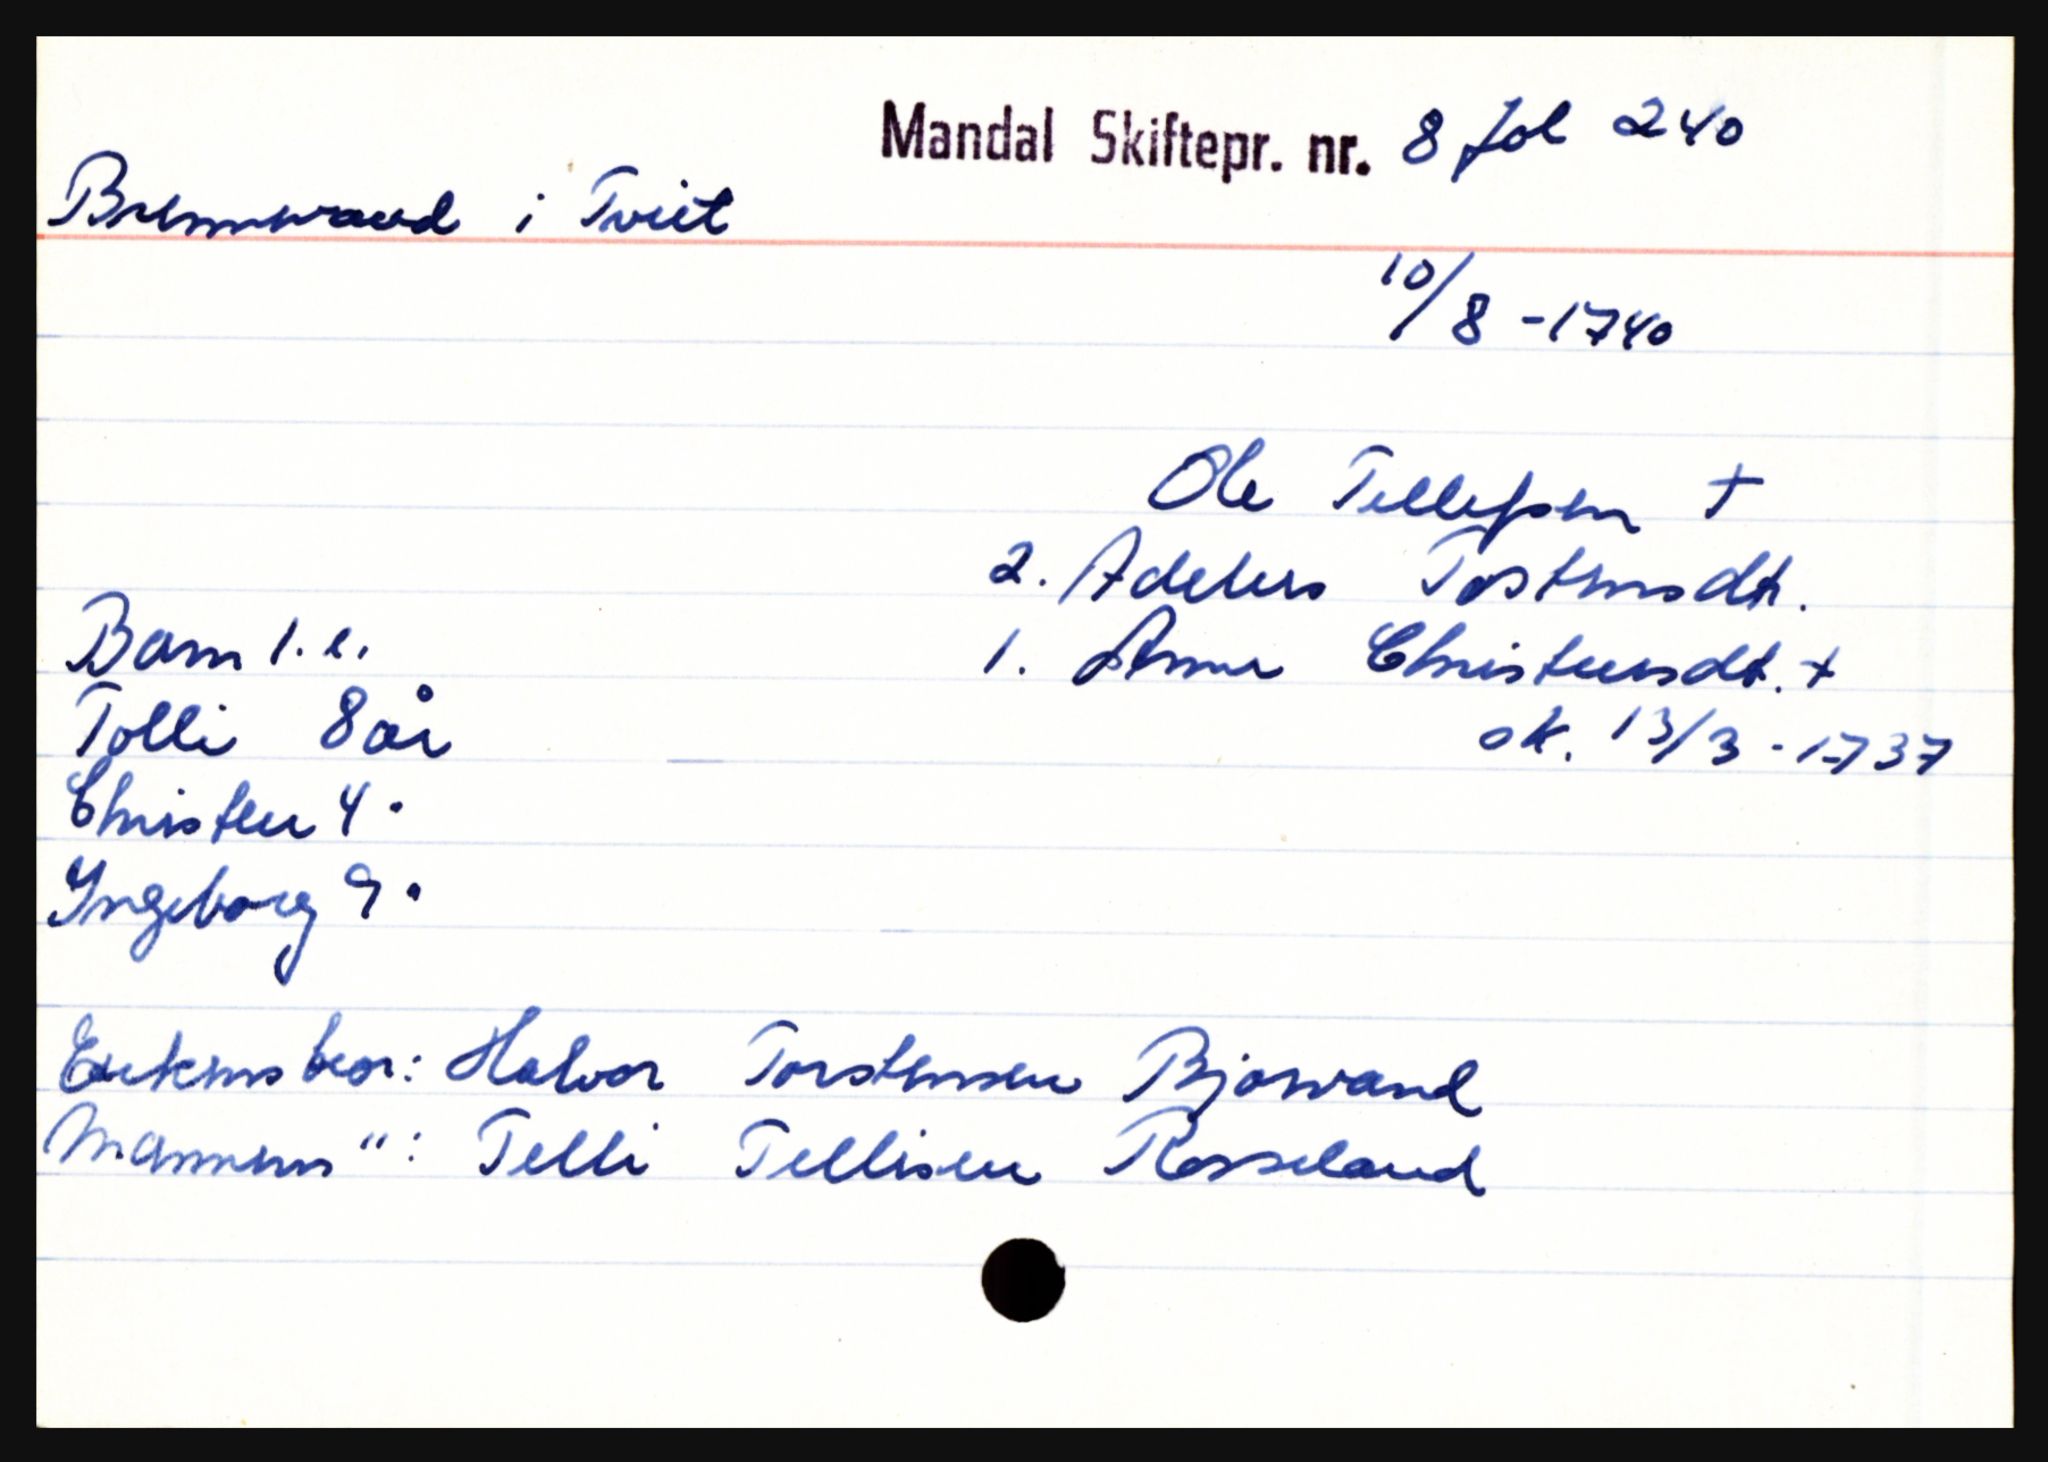 Mandal Skiftepr. nr. 8 fol 240
Brennwand i Tveit
10/8 - 1740
Ole Tellefsen +
2. Adelus Tostensdt.
Barn 1. e. 1. Anna Christensdt. +
Tolli 8 år sk. 13/3 - 1737
Christen 4 "
Ingeborg 9 "
Enkens bror: Halvor Torstensen Bjorvand
Mannens " : Telli Tellisen Rosseland